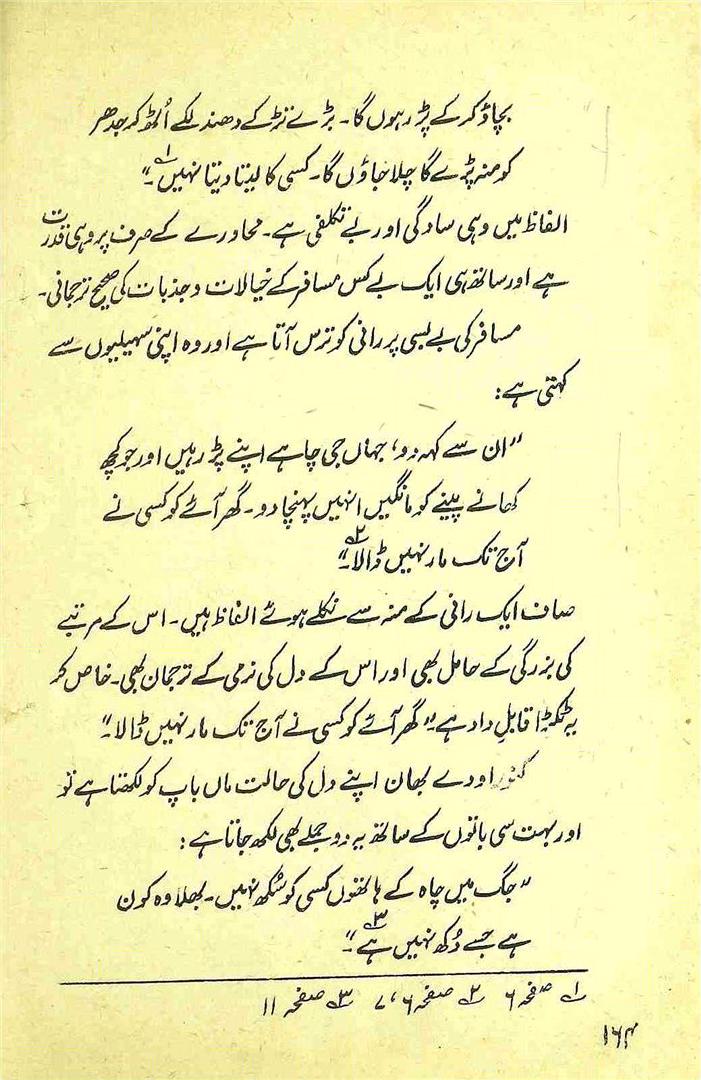 بچاڈ کر کے پڑ رہوں گا۔ بڑے تڑکے دھندلکے اُٹھ کر جدھر
کو منہ پڑے گا چلا جاؤں گا۔ کسی کا لیتا دیتا نہیں۔“ ۱؎
الفاظ میں وہی سادگی اور بے تکلفی ہے۔ محاورے کے صرف پر وہی قدرت
ہے اور ساتھ ہی ایک بے کس مسافر کے خیالات و جذبات کی صحیح ترجمانی۔
مسافر کی بے بسی پر رانی کو ترس آتا ہے اور وہ اپنی سہیلیوں سے
کہتی ہے :
”ان سے کہہ دو، جہاں جی چاہے اپنے پڑ رہیں اور جو کچھ
کھانے پینے کو مانگیں انہیں پہنچا دو۔ گھر آئے کو کسی نے
آج تک مار نہیں ڈالا۔“ ۲؎
صاف ایک رانی کے منہ سے نکلے ہوئے الفاظ ہیں۔ اس کے مرتبے
کی بزرگی کے حامل بھی اور اس کے دل کی نرمی کے ترجمان بھی۔ خاص کر
یہ ٹکڑا قابلِ داد ہے۔ ”گھر آئے کو کسی نے آج تک مار نہیں ڈالا۔“
کنور اودے بھان اپنے دل کی حالت ماں باپ کو لکھتا ہے تو
اور بہت سی باتوں کے ساتھ یہ دو جملے بھی لکھ جاتا ہے :
”جگ میں چاہ کے ہاتھوں کسی کو سُکھ نہیں۔ بھلا وہ کون
ہے جسے دُکھ نہیں ہے۔“ ۳؎
۱؎ صفحہ ۶ ۲؎ صفحہ ۶، ۷ ۳؎ صفحہ ۱۱
۱۶۴